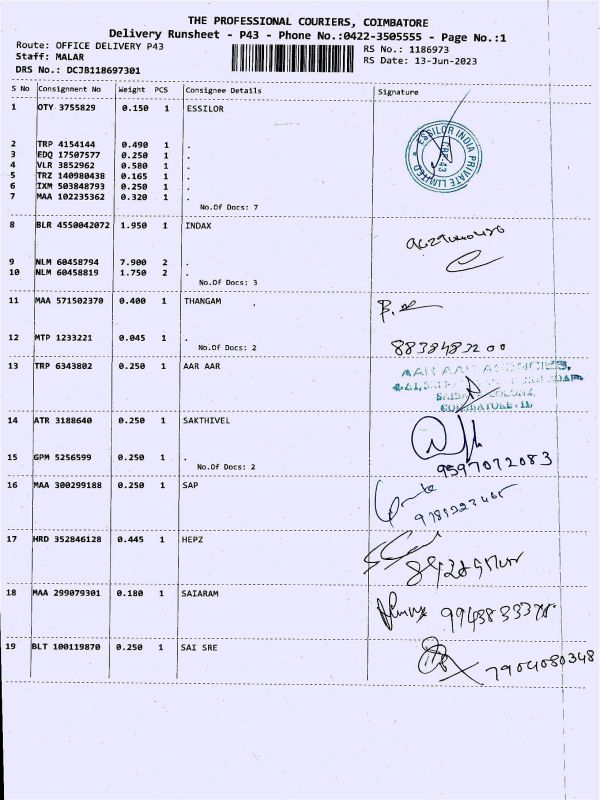 THE PROFESSIONAL COURIERS, COIMBATORE
Delivery Runsheet - P43 - Phone No.:0422-3505555 - Page No.:1
Route: OFFICE DELIVERY P43 RS No.: 1186973
Staff: MALAR RS Date: 13-Jun-2023
DRS No.: DCJB118697301
S No Consignment No Weight PCS Consignee Details Signature
1 OTY 3755829 0.150 1 ESSILOR
ESSILOR INDIA PRIVATE LIMITED
2 TRP 4154144 0.490 1 .
3 EDQ 17507577 0.250 1 .
4 VLR 3852962 0.580 1 .
5 TRZ 140980438 0.165 1 .
6 IXM 503848793 0.250 1 .
7 MAA 102235362 0.320 1 .
No.Of Docs: 7
8 BLR 4550042072 1.950 1 INDAX
9 NLM 60458794 7.900 2 .
10 NLM 60458819 1.750 2 .
No.Of Docs: 3
11 MAA 571502370 0.400 1 THANGAM
12 MTP 1233221 0.045 1 .
No.Of Docs: 2
8838483200
13 TRP 6343802 0.250 1 AAR AAR
14 ATR 3188640 0.250 1 SAKTHIVEL
15 GPM 5256599 0.250 1 .
No.Of Docs: 2
9597072083
16 MAA 300299188 0.250 1 SAP
17 HRD 352846128 0.445 1 HEPZ
18 MAA 299079301 0.180 1 SAIARAM
19 BLT 100119870 0.250 1 SAI SRE
7904080348